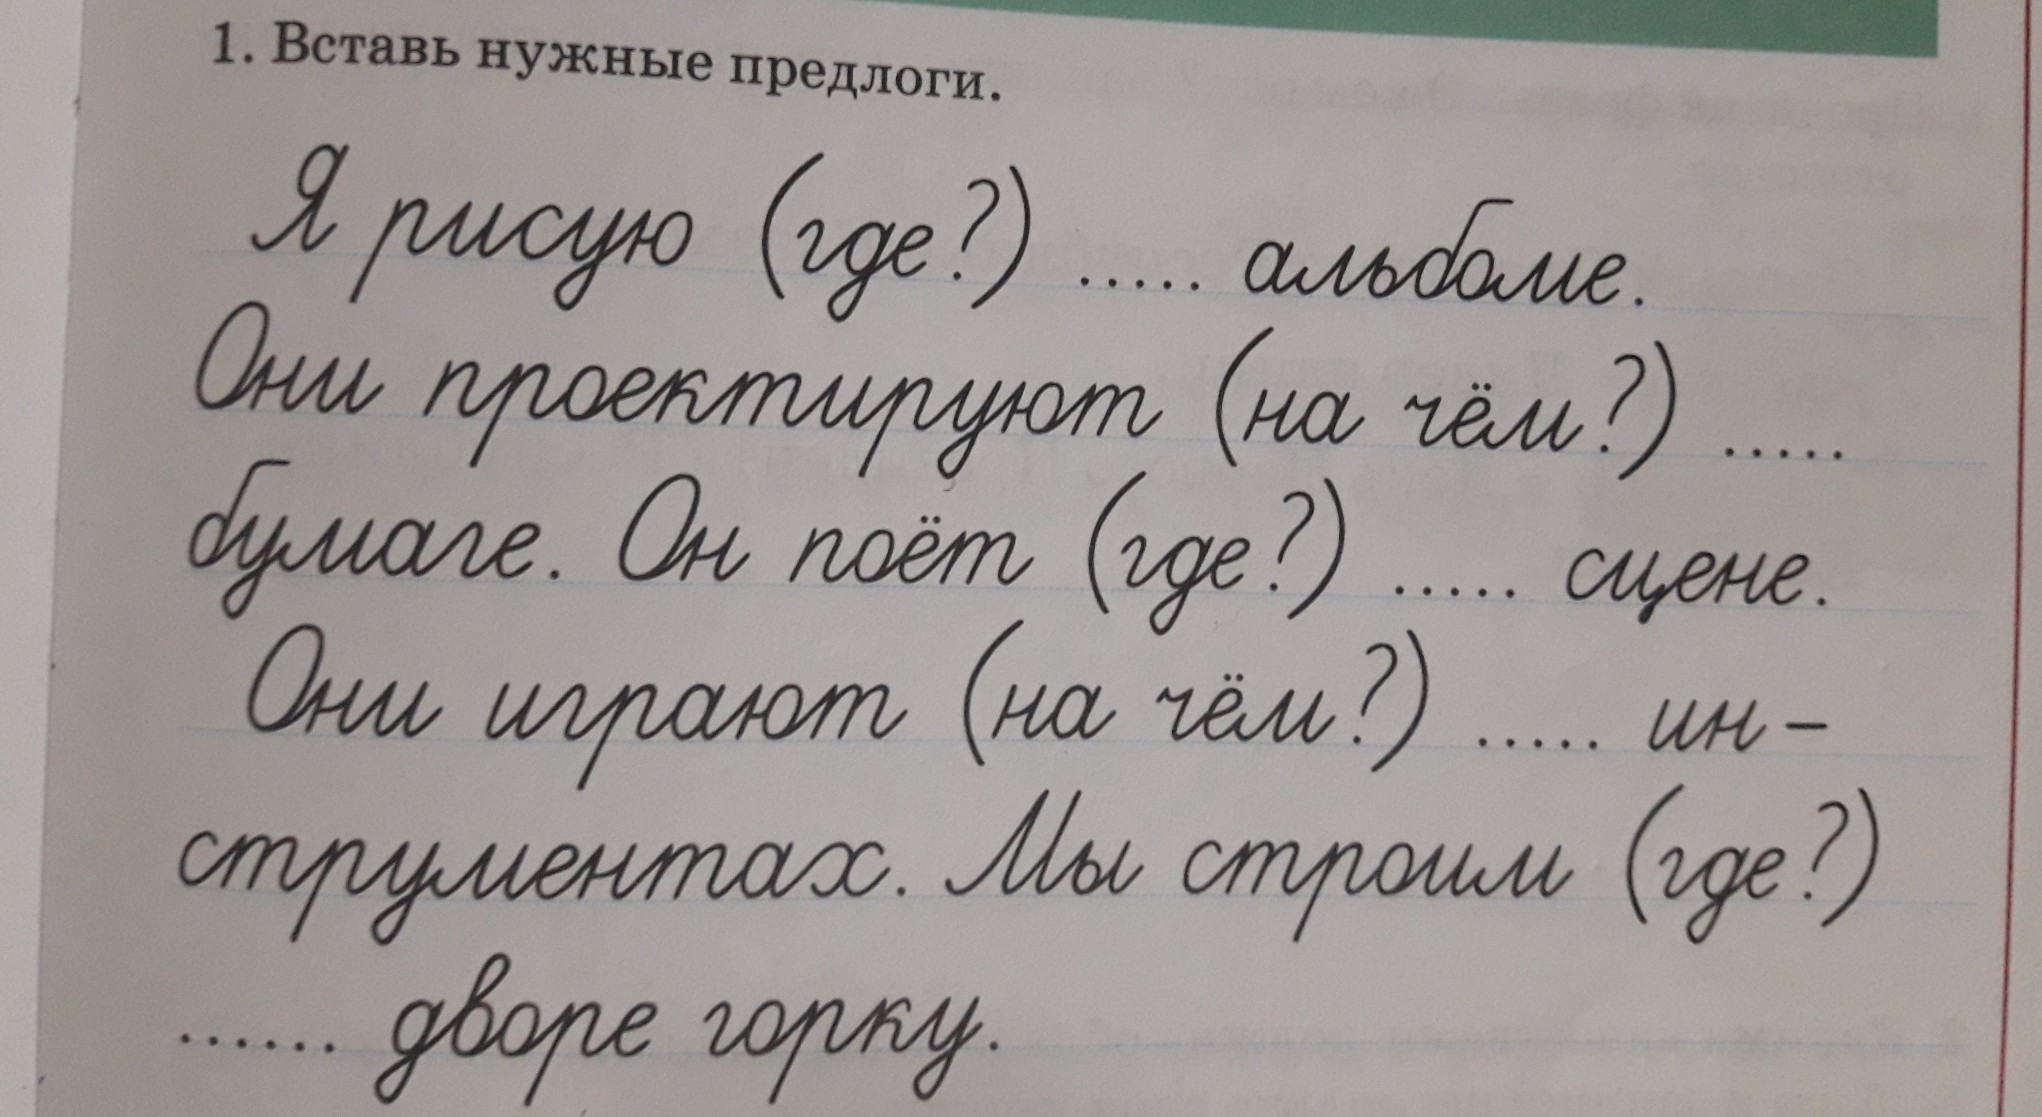 1. Вставь нужные предлоги.
Я рисую (где?) ..... альбоме.
Они проектируют (на чём?) .....
бумаге. Он поёт (где?) ..... сцене.
Они играют (на чём?) ..... ин-
струментах. Мы строим (где?)
...... дворе горку.